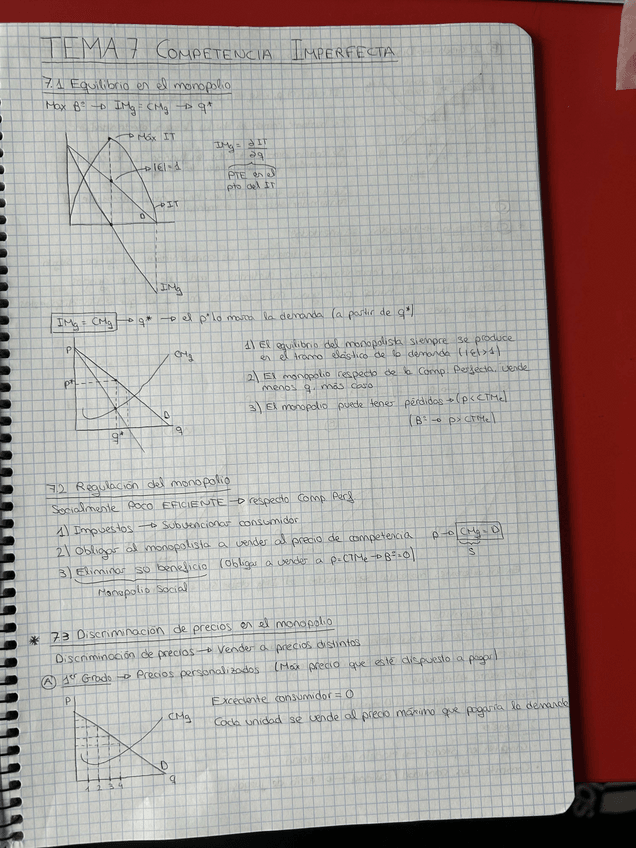 TEMA 7 COMPETENCIA IMPERFECTA
7.1 Equilibrio en el monopolio
Max Bº → IMg = CMg → q*
Máx IT
|ε|=1
IMg = ∂IT/∂q
PTE en el
pto del IT
D
IT
IMg
IMg = CMg → q* → el p* lo marca la demanda (a partir de q*)
P
CMg
p*
D
q*
q
1) El equilibrio del monopolista siempre se produce
en el tramo elástico de la demanda (|ε|>1)
2) El monopolio respecto de la Comp. Perfecta, vende
menos q, más caro
3) El monopolio puede tener pérdidas → (p<CTMe)
(Bº → p>CTMe)
7.2 Regulación del monopolio
Socialmente POCO EFICIENTE → respecto Comp Perf
1) Impuestos → Subvencionar consumidor
2) Obligar al monopolista a vender al precio de competencia p → CMg = D
S
3) Eliminar so beneficio (Obligar a vender a p=CTMe → Bº=0)
Monopolio Social
* 7.3 Discriminación de precios en el monopolio
Discriminación de precios → Vender a precios distintos
A 1er Grado → Precios personalizados (Máx precio que esté dispuesto a pagar)
P
CMg
D
1 2 3 4
q
Excedente consumidor = 0
Cada unidad se vende al precio máximo que pagaría la demanda